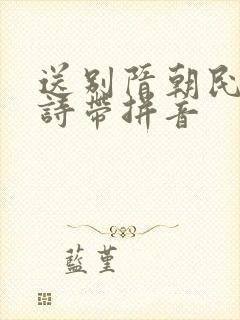 送别隋朝民
詩帶拼音
藍堇